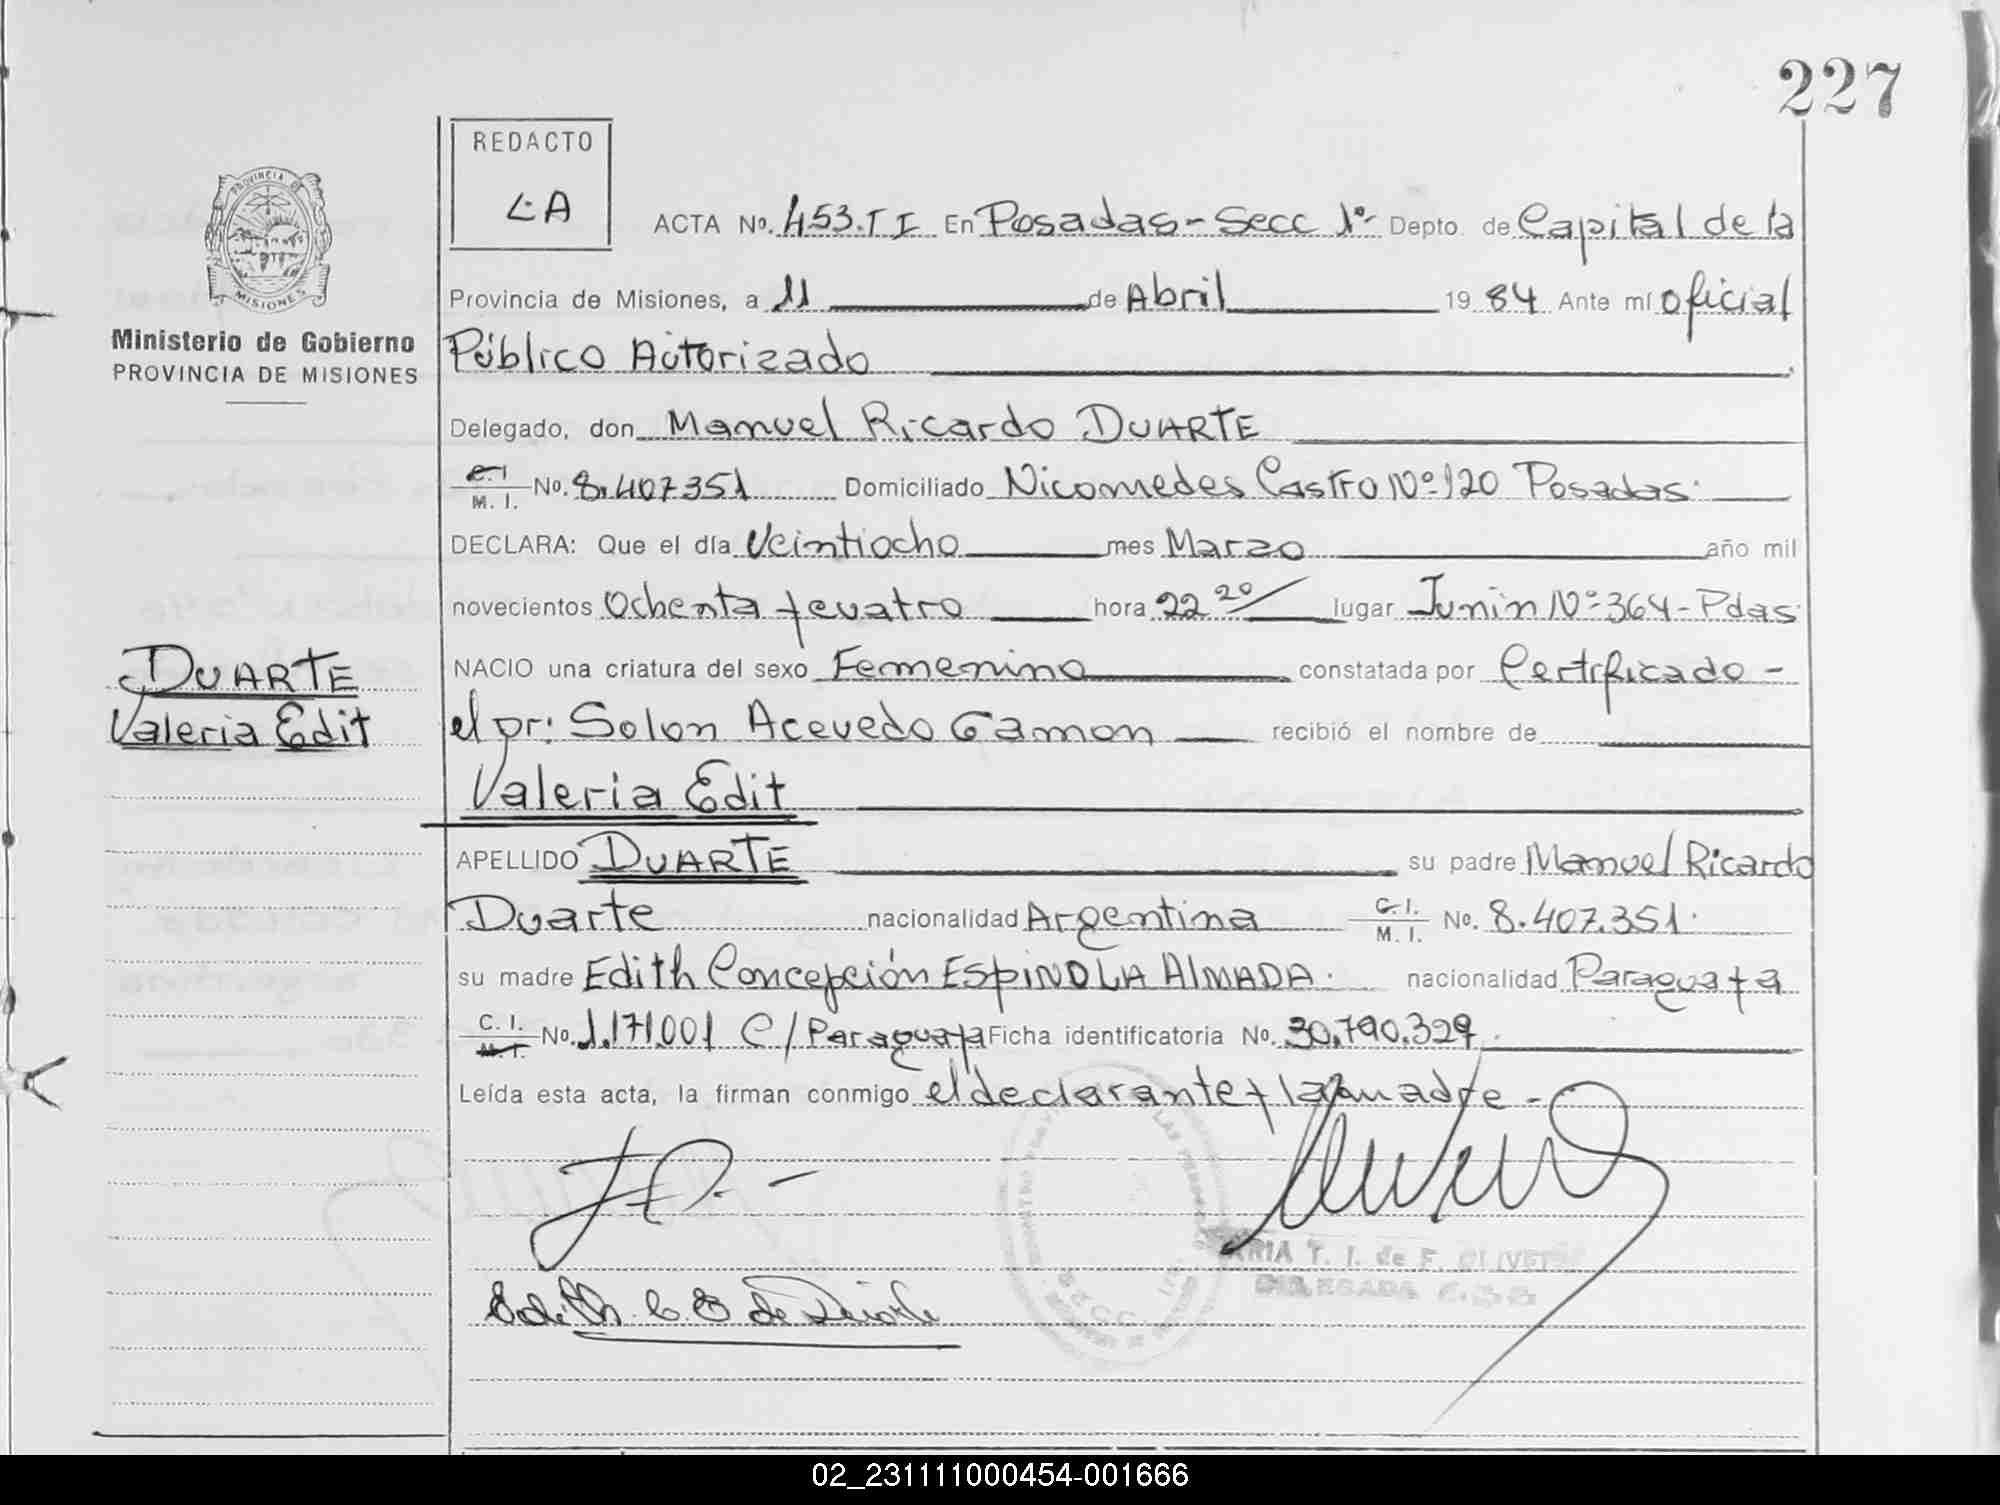 227
REDACTO
LA
PROVINCIA DE
MISIONES
Ministerio de Gobierno
PROVINCIA DE MISIONES
ACTA No. 453.T I En Posadas - Secc 1º- Depto. de Capital de la
Provincia de Misiones, a 11 de Abril 1984 Ante mí oficial
Público Autorizado
Delegado, don Manuel Ricardo DUARTE
C.I. M. I. No. 8.407351 Domiciliado Nicomedes Castro Nº 120 Posadas.
DECLARA: Que el día Veintiocho mes Marzo año mil
novecientos Ochenta y cuatro hora 22 20/ lugar Junin Nº 364 - Pdas.
DUARTE
NACIO una criatura del sexo Femenino constatada por Certificado -
Valeria Edit
el Dr: Solon Acevedo Gamon recibió el nombre de
Valeria Edit
APELLIDO DUARTE su padre Manuel Ricardo
Duarte nacionalidad Argentina C. I. M. I. No. 8.407.351.
su madre Edith Concepción ESPINOLA ALMADA. nacionalidad Paraguaya
C. I. M. I. No. 1.171.001 C/ Paraguaya Ficha identificatoria No. 30.790.329.
Leída esta acta, la firman conmigo el declarante y la madre -
ARIA T. I. de F. OLIVE
DELEGADA
SECC.
Edith C. E de Duarte
02_231111000454-001666